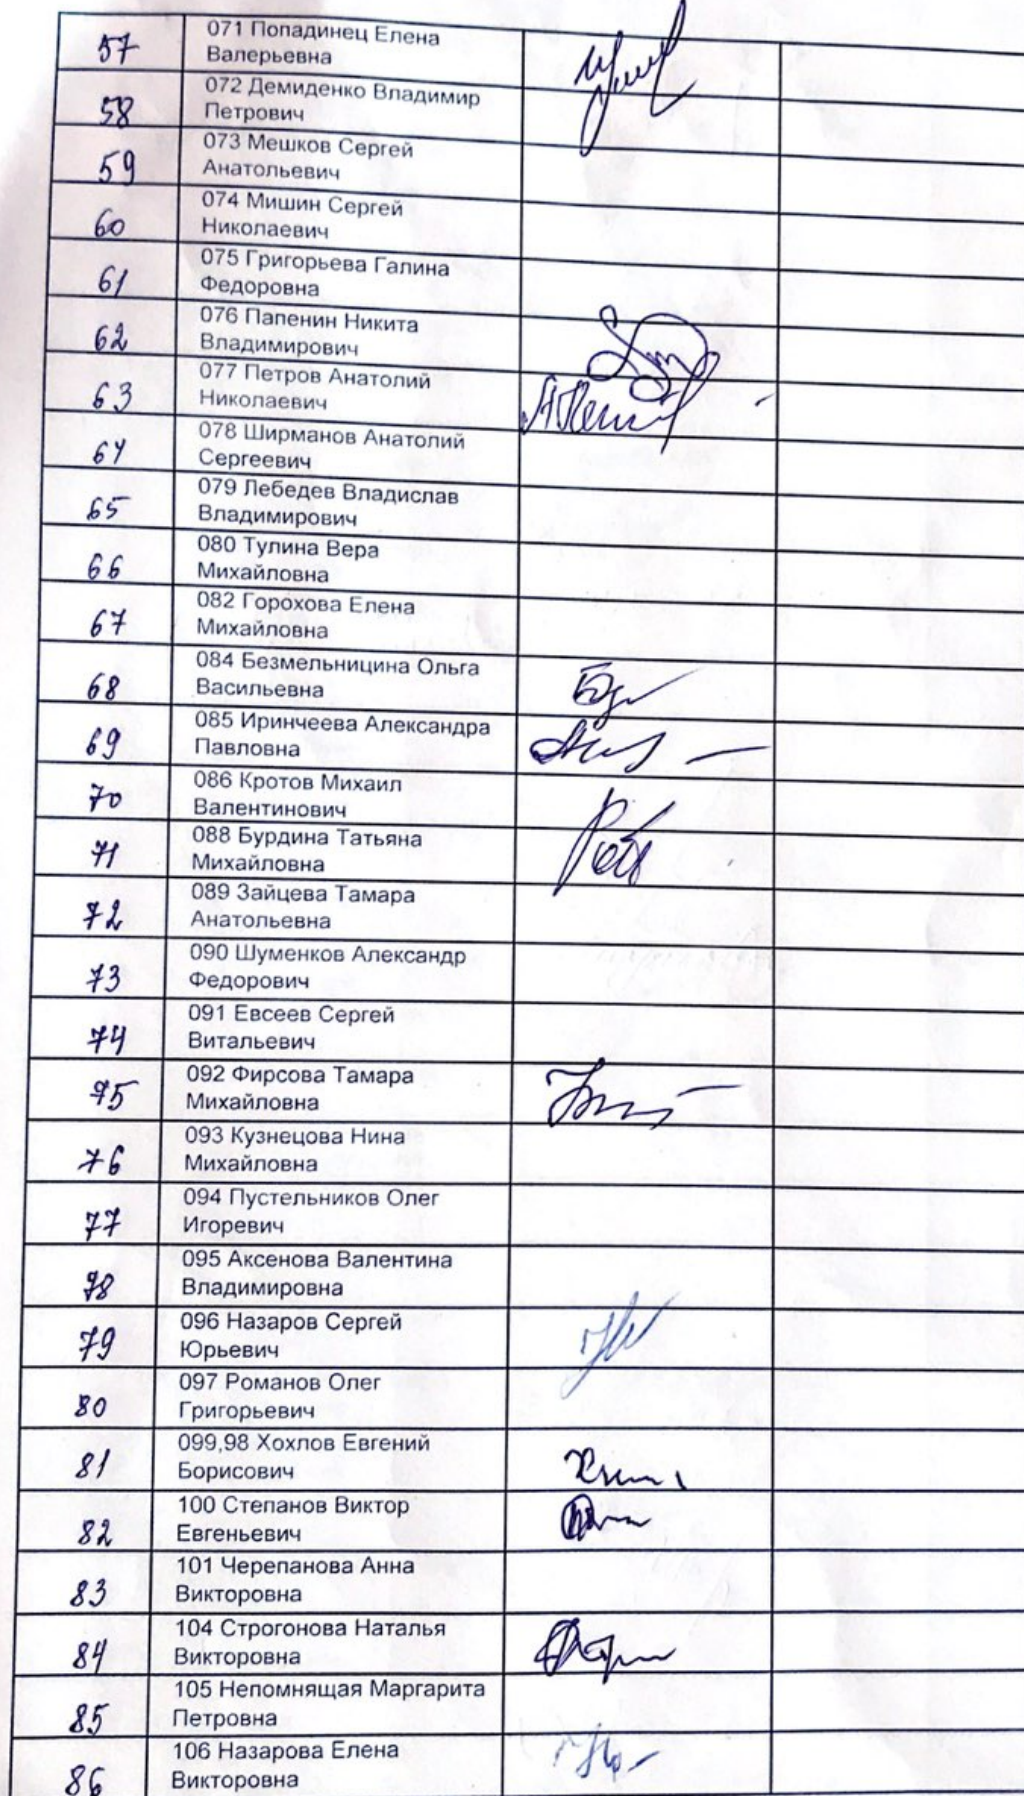 57
071 Попадинец Елена
Валерьевна
58
072 Демиденко Владимир
Петрович
59
073 Мешков Сергей
Анатольевич
60
074 Мишин Сергей
Николаевич
61
075 Григорьева Галина
Федоровна
62
076 Папенин Никита
Владимирович
63
077 Петров Анатолий
Николаевич
64
078 Ширманов Анатолий
Сергеевич
65
079 Лебедев Владислав
Владимирович
66
080 Тулина Вера
Михайловна
67
082 Горохова Елена
Михайловна
68
084 Безмельницина Ольга
Васильевна
69
085 Иринчеева Александра
Павловна
70
086 Кротов Михаил
Валентинович
71
088 Бурдина Татьяна
Михайловна
72
089 Зайцева Тамара
Анатольевна
73
090 Шуменков Александр
Федорович
74
091 Евсеев Сергей
Витальевич
75
092 Фирсова Тамара
Михайловна
76
093 Кузнецова Нина
Михайловна
77
094 Пустельников Олег
Игоревич
78
095 Аксенова Валентина
Владимировна
79
096 Назаров Сергей
Юрьевич
80
097 Романов Олег
Григорьевич
81
099,98 Хохлов Евгений
Борисович
82
100 Степанов Виктор
Евгеньевич
83
101 Черепанова Анна
Викторовна
84
104 Строгонова Наталья
Викторовна
85
105 Непомнящая Маргарита
Петровна
86
106 Назарова Елена
Викторовна